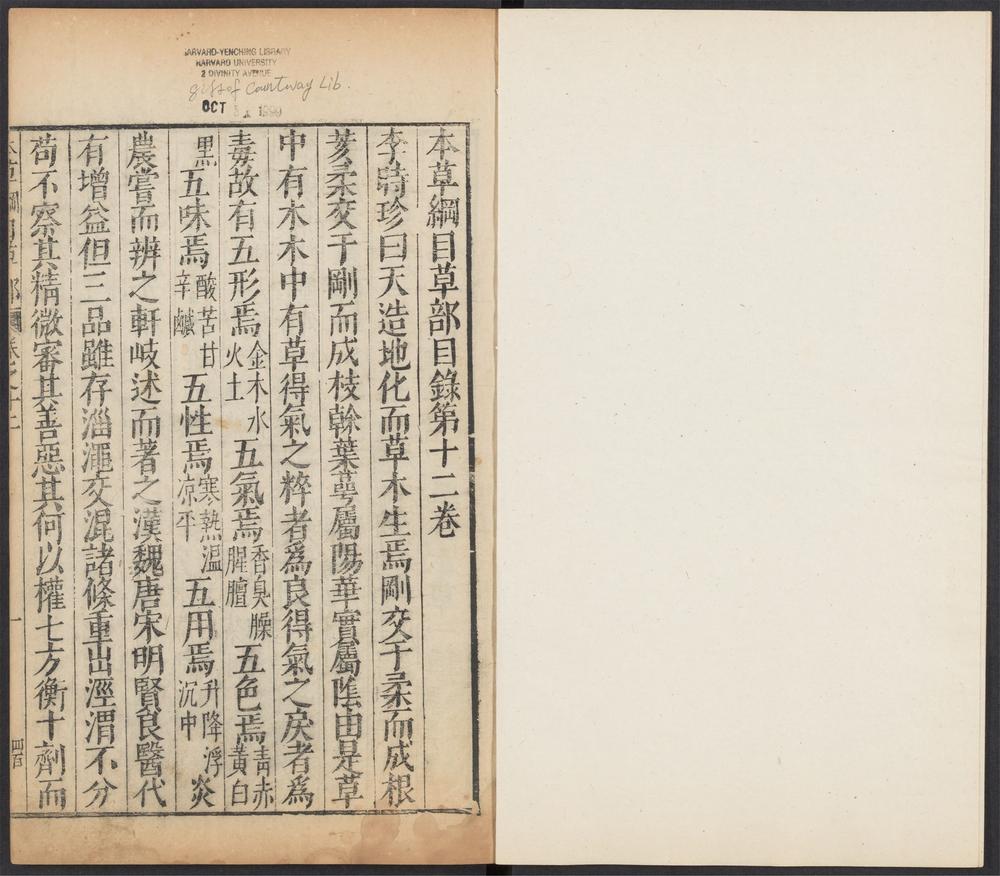 HARVARD-YENCHING LIBRARY
HARVARD UNIVERSITY
2 DIVINITY AVENUE
gift of Countway Lib.
OCT 1990
本草綱目草部目錄第十二卷
李時珍曰天造地化而草木生焉剛交于柔而成根
荄柔交于剛而成枝榦葉萼屬陽華實屬陰由是草
中有木木中有草得氣之粹者爲良得氣之戾者爲
毒故有五形焉金木水火土五氣焉香臭臊腥膻五色焉青赤黃白
黑五味焉酸苦甘辛鹹五性焉寒熱温凉平五用焉升降浮沉中炎
農嘗而辨之軒岐述而著之漢魏唐宋明賢良醫代
有增益但三品雖存淄澠交混諸條重出涇渭不分
苟不察其精微審其善惡其何以權七方衡十劑而